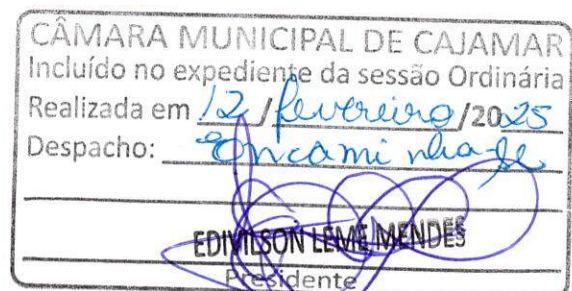 CÂMARA MUNICIPAL DE CAJAMAR
Incluído no expediente da sessão Ordinária
Realizada em 12 / fevereiro /2025
Despacho: Encaminha-se
EDIVILSON LEME MENDES
Presidente